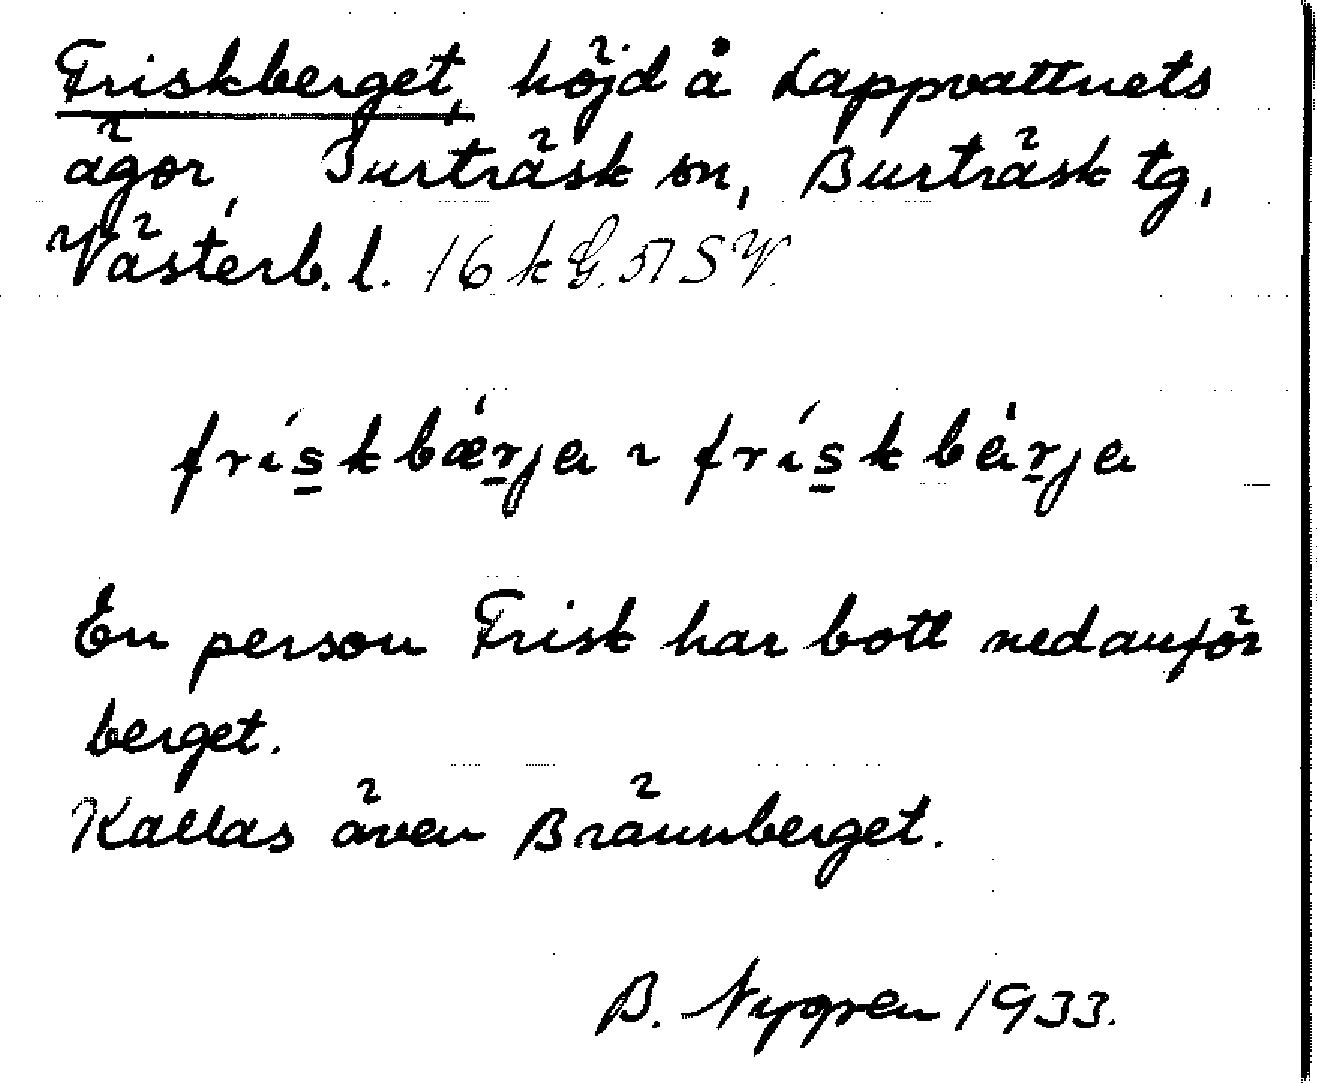 Friskberget, höjd å Lappvattnets
ägor, Burträsk sn, Burträsk tg,
Västerb. l. 16 k G. 57 SV.
friskbærja ~ friskbärja
En person Frisk har bott nedanför
berget.
Kallas även Brännberget.
B. Nygren 1933.